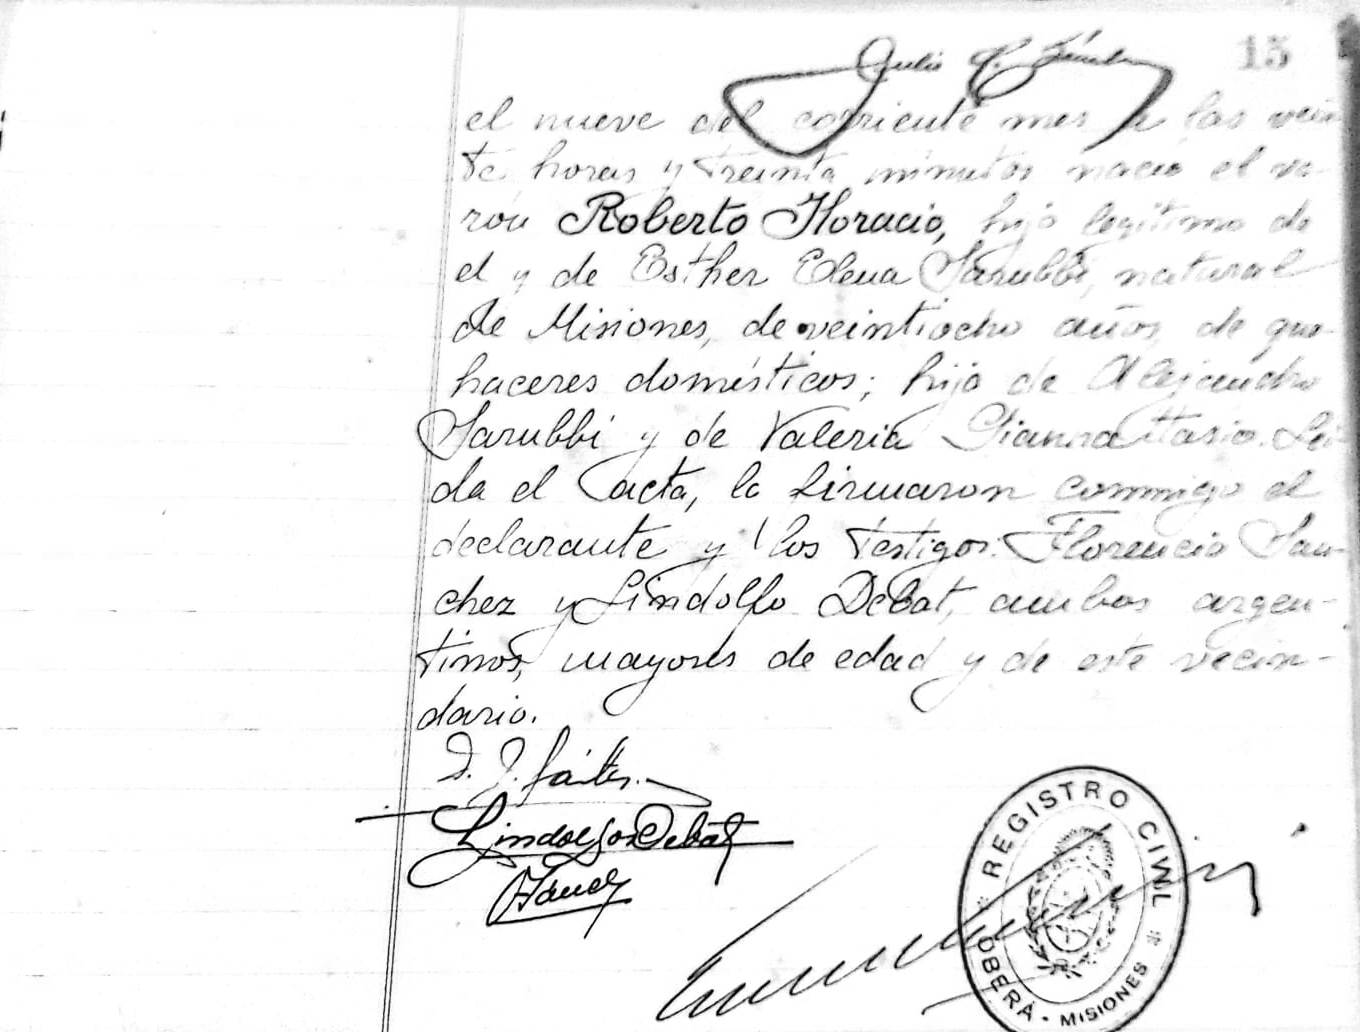 15
Julio
el nueve del corriente mes a las vein
te horas y treinta minutos nació el va-
rón Roberto Horacio, hijo legítimo de
el y de Esther Elena Sarubbi, natural
de Misiones, de veintiocho años, de que-
haceres domésticos; hija de Alejandro
Sarubbi y de Valeria Giannattasio. Leí-
da el acta, la firmaron conmigo el
declarante y los testigos: Florencio San-
chez y Lindolfo Debat, ambos argen-
tinos, mayores de edad y de este vecin-
dario.
D. J.
Lindolfo Debat
REGISTRO CIVIL
OBERÁ - MISIONES